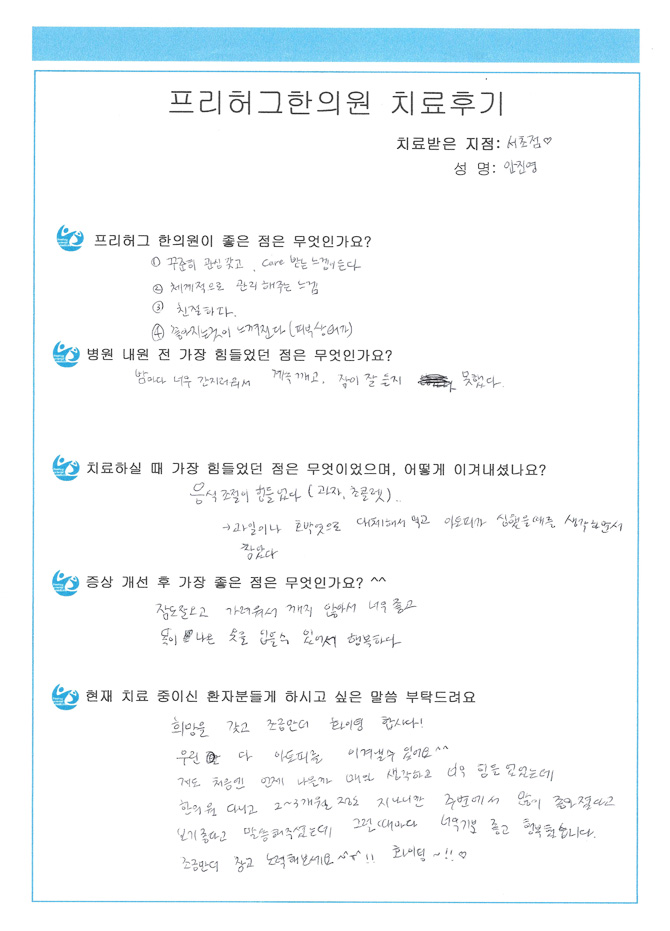 프리허그한의원 치료후기
치료받은 지점: 서초점♡
성 명: 안진영
프리허그 한의원이 좋은 점은 무엇인가요?
① 꾸준히 관심갖고, care 받는느낌이든다
② 체계적으로 관리해주는느낌
③ 친절하다.
④ 좋아지는것이 느껴진다 (피부상태가)
병원 내원 전 가장 힘들었던 점은 무엇인가요?
밤마다 너무 간지러워서 계속깨고, 잠이 잘 들지 못했다.
치료하실 때 가장 힘들었던 점은 무엇이었으며, 어떻게 이겨내셨나요?
음식조절이 힘들었다 (과자, 초콜렛)..
→과일이나 호박엿으로 대체해서 먹고 아토피가 심했을때를 생각하면서
참았다
증상 개선 후 가장 좋은 점은 무엇인가요? ^^
잠도잘오고 가려워서 깨지 않아서 너무좋고
목이 나온 옷을 입을수 있어서 행복하다
현재 치료 중이신 환자분들게 하시고 싶은 말씀 부탁드려요
희망을 갖고 조금만더 화이팅 합시다!
우린 다 아토피를 이겨낼수있어요^^
저도 처음엔 언제 나을까 매일 생각하고 너무 힘들었었는데
한의원 다니고 2~3개월 정도 지나니깐 주변에서 많이 좋아졌다고
보기좋다고 말씀해주셨는데 그런때마다 너무기분 좋고 행복합니다.
조금만더 참고 노력해보세요 ^^!! 화이팅~!!♡